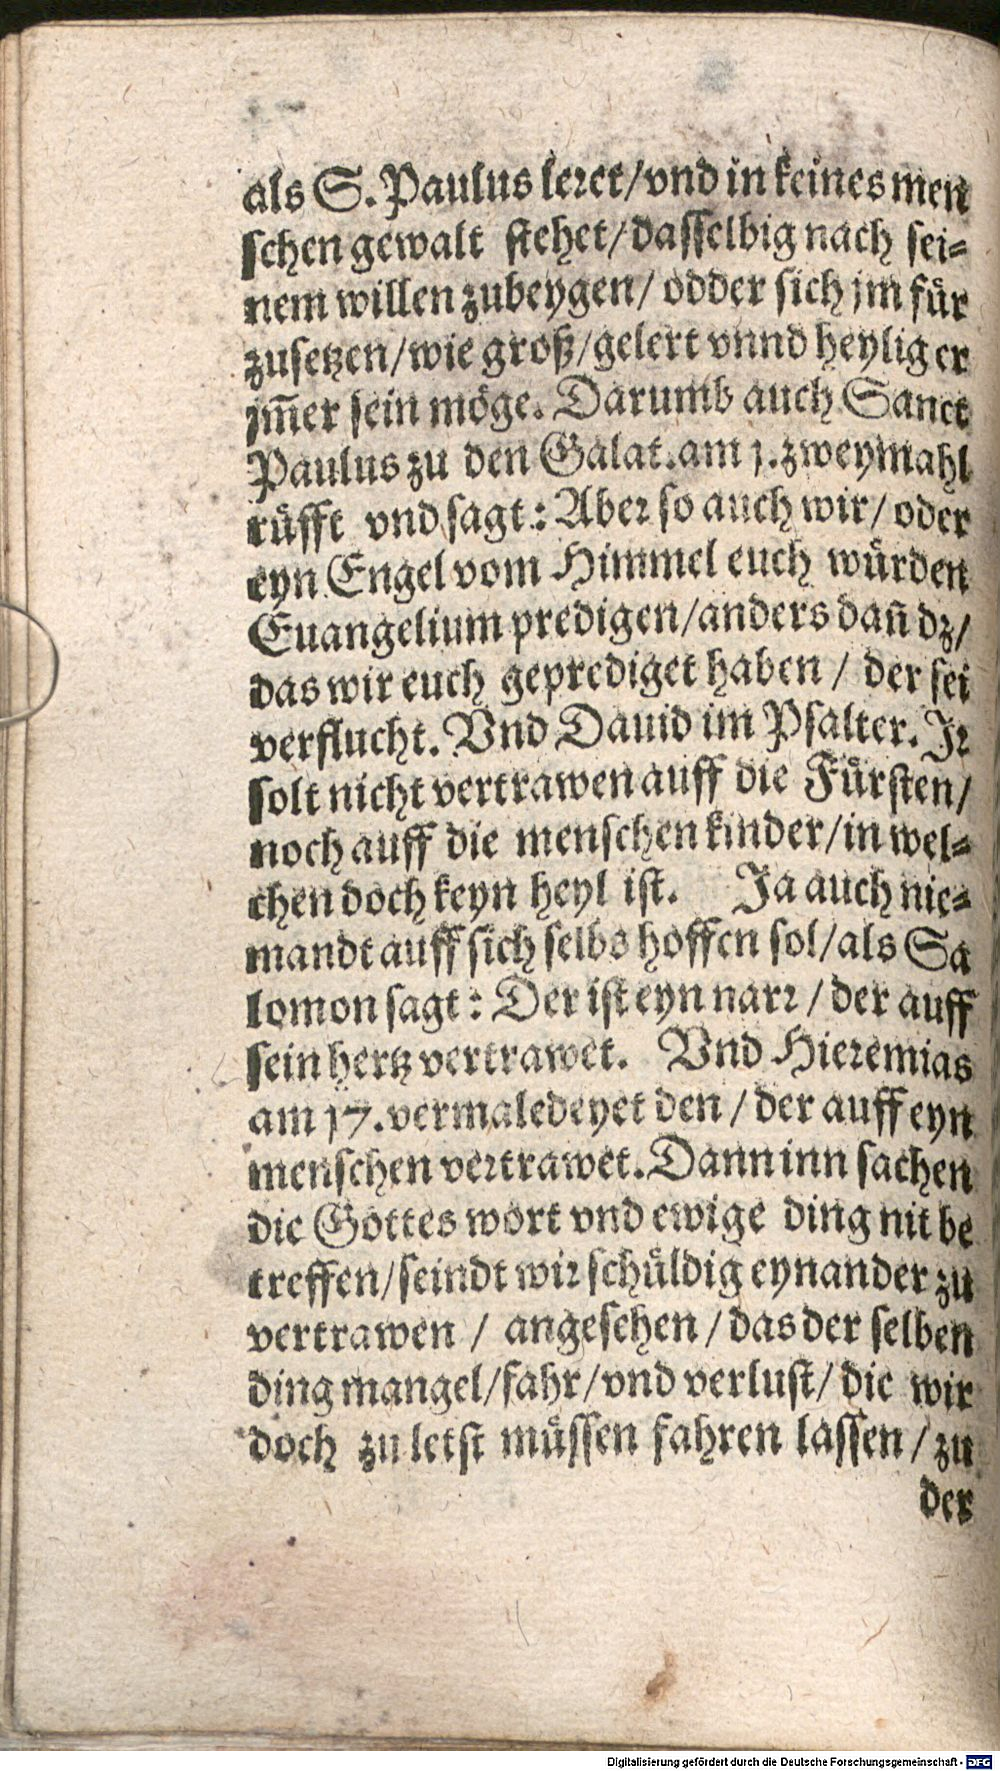 als S. Paulus leret/vnd in keines men
schen gewalt stehet/dasselbig nach sei-
nem willen zubeygen/ odder sich jm für
zusetzen/wie groß/gelert vnnd heylig er
jm̃er sein möge. Darumb auch Sanct
Paulus zu den Galat.am j.zweymahl
rüfft vnd sagt: Aber so auch wir/ oder
eyn Engel vom Himmel euch würden
Euangelium predigen/anders dañ dz/
das wir euch geprediget haben / der sei
verflucht. Vnd Dauid im Psalter. Ir
solt nicht vertrawen auff die Fürsten/
noch auff die menschen kinder/in wel-
chen doch keyn heyl ist. Ja auch nie-
mandt auff sich selbs hoffen sol/als Sa
lomon sagt: Der ist eyn narr / der auff
sein hertz vertrawet. Vnd Hieremias
am j7.vermaledeyet den / der auff eyn
menschen vertrawet. Dann inn sachen
die Gottes wort vnd ewige ding nit be
treffen/seindt wir schüldig eynander zu
vertrawen / angesehen / das der selben
ding mangel/fahr/vnd verlust/ die wir
doch zu letst müssen fahren lassen / zu
der
Digitalisierung gefördert durch die Deutsche Forschungsgemeinschaft - DFG